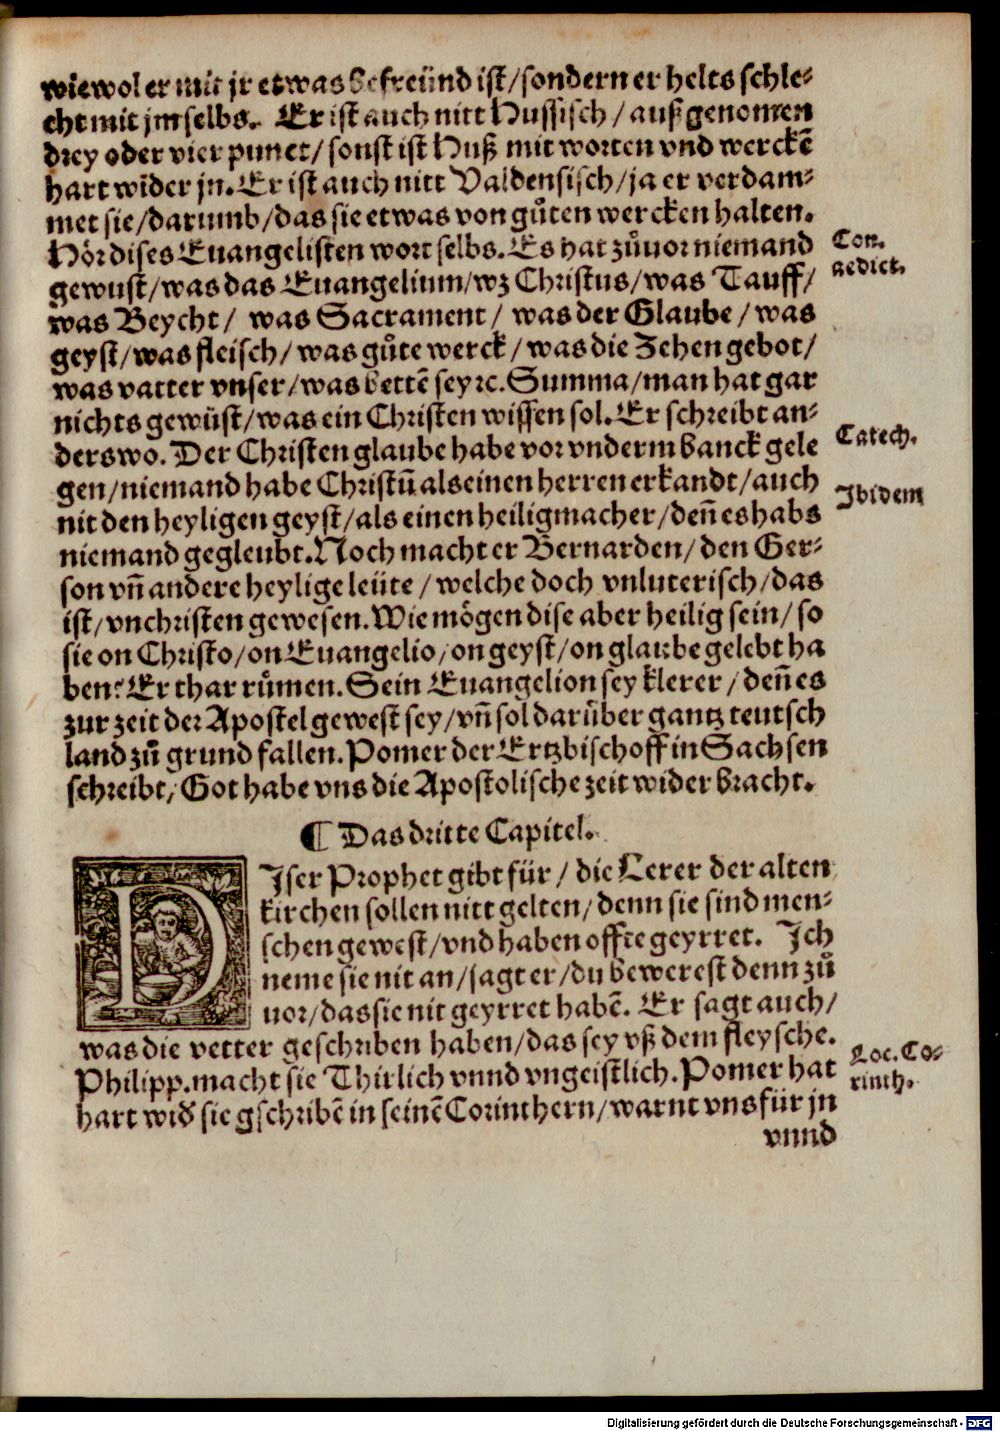 wiewol er mit jr etwas befreünd ist/sondern er helts schle-
cht mit jm selbs. Er ist auch nitt Hussisch/außgenomen
drey oder vier punct/sonst ist Huß mit worten vnd werckē
hart wider jn. Er ist auch nitt Valdensisch/ja er verdam-
met sie/darumb/das sie etwas von gůten wercken halten.
Hör dises Euangelisten wort selbs. Es hat zůuor niemand
Con.
aedict.
gewust/was das Euangelium/wz Christus/was Tauff/
was Beycht/ was Sacrament/ was der Glaube/was
geyst/was fleisch/was gůte werck/was die Zehen gebot/
was vatter vnser/was bettē sey ⁊c. Summa/man hat gar
nichts gewüst/was ein Christen wissen sol. Er schreibt an-
derswo. Der Christen glaube habe vor vnderm banck gele
Catech.
gen/niemand habe Christū als einen herren erkandt/auch
nit den heyligen geyst/als einen heiligmacher/deñ es habs
Ibidem
niemand gegleubt. Noch macht er Bernarden/den Ger-
son vñ andere heylige leüte/welche doch vnluterisch/das
ist/vnchristen gewesen. Wie mögen dise aber heilig sein/so
sie on Christo/on Euangelio/on geyst/on glaube gelebt ha
ben? Er thar růmen. Sein Euangelion sey klerer/deñ es
zur zeit der Apostel gewest sey/vñ sol darüber gantz teutsch
land zů grund fallen. Pomer der Ertzbischoff in Sachsen
schreibt/Got habe vns die Apostolische zeit wider bracht.
¶ Das dritte Capitel.
DIser Prophet gibt für/die Lerer der alten
kirchen sollen nitt gelten/denn sie sind men-
schen gewest/vnd haben offte geyrret. Ich
neme sie nit an/sagt er/du bewerest denn zů
uor/das sie nit geyrret habē. Er sagt auch/
was die vetter geschriben haben/das sey vß dem fleysche.
Philipp. macht sie Thirlich vnnd vngeistlich. Pomer hat
Loc. Co-
rinth.
hart wid᷑ sie gschribē in seinē Corinthern/warnt vns für jn
vnnd
Digitalisierung gefördert durch die Deutsche Forschungsgemeinschaft - DFG